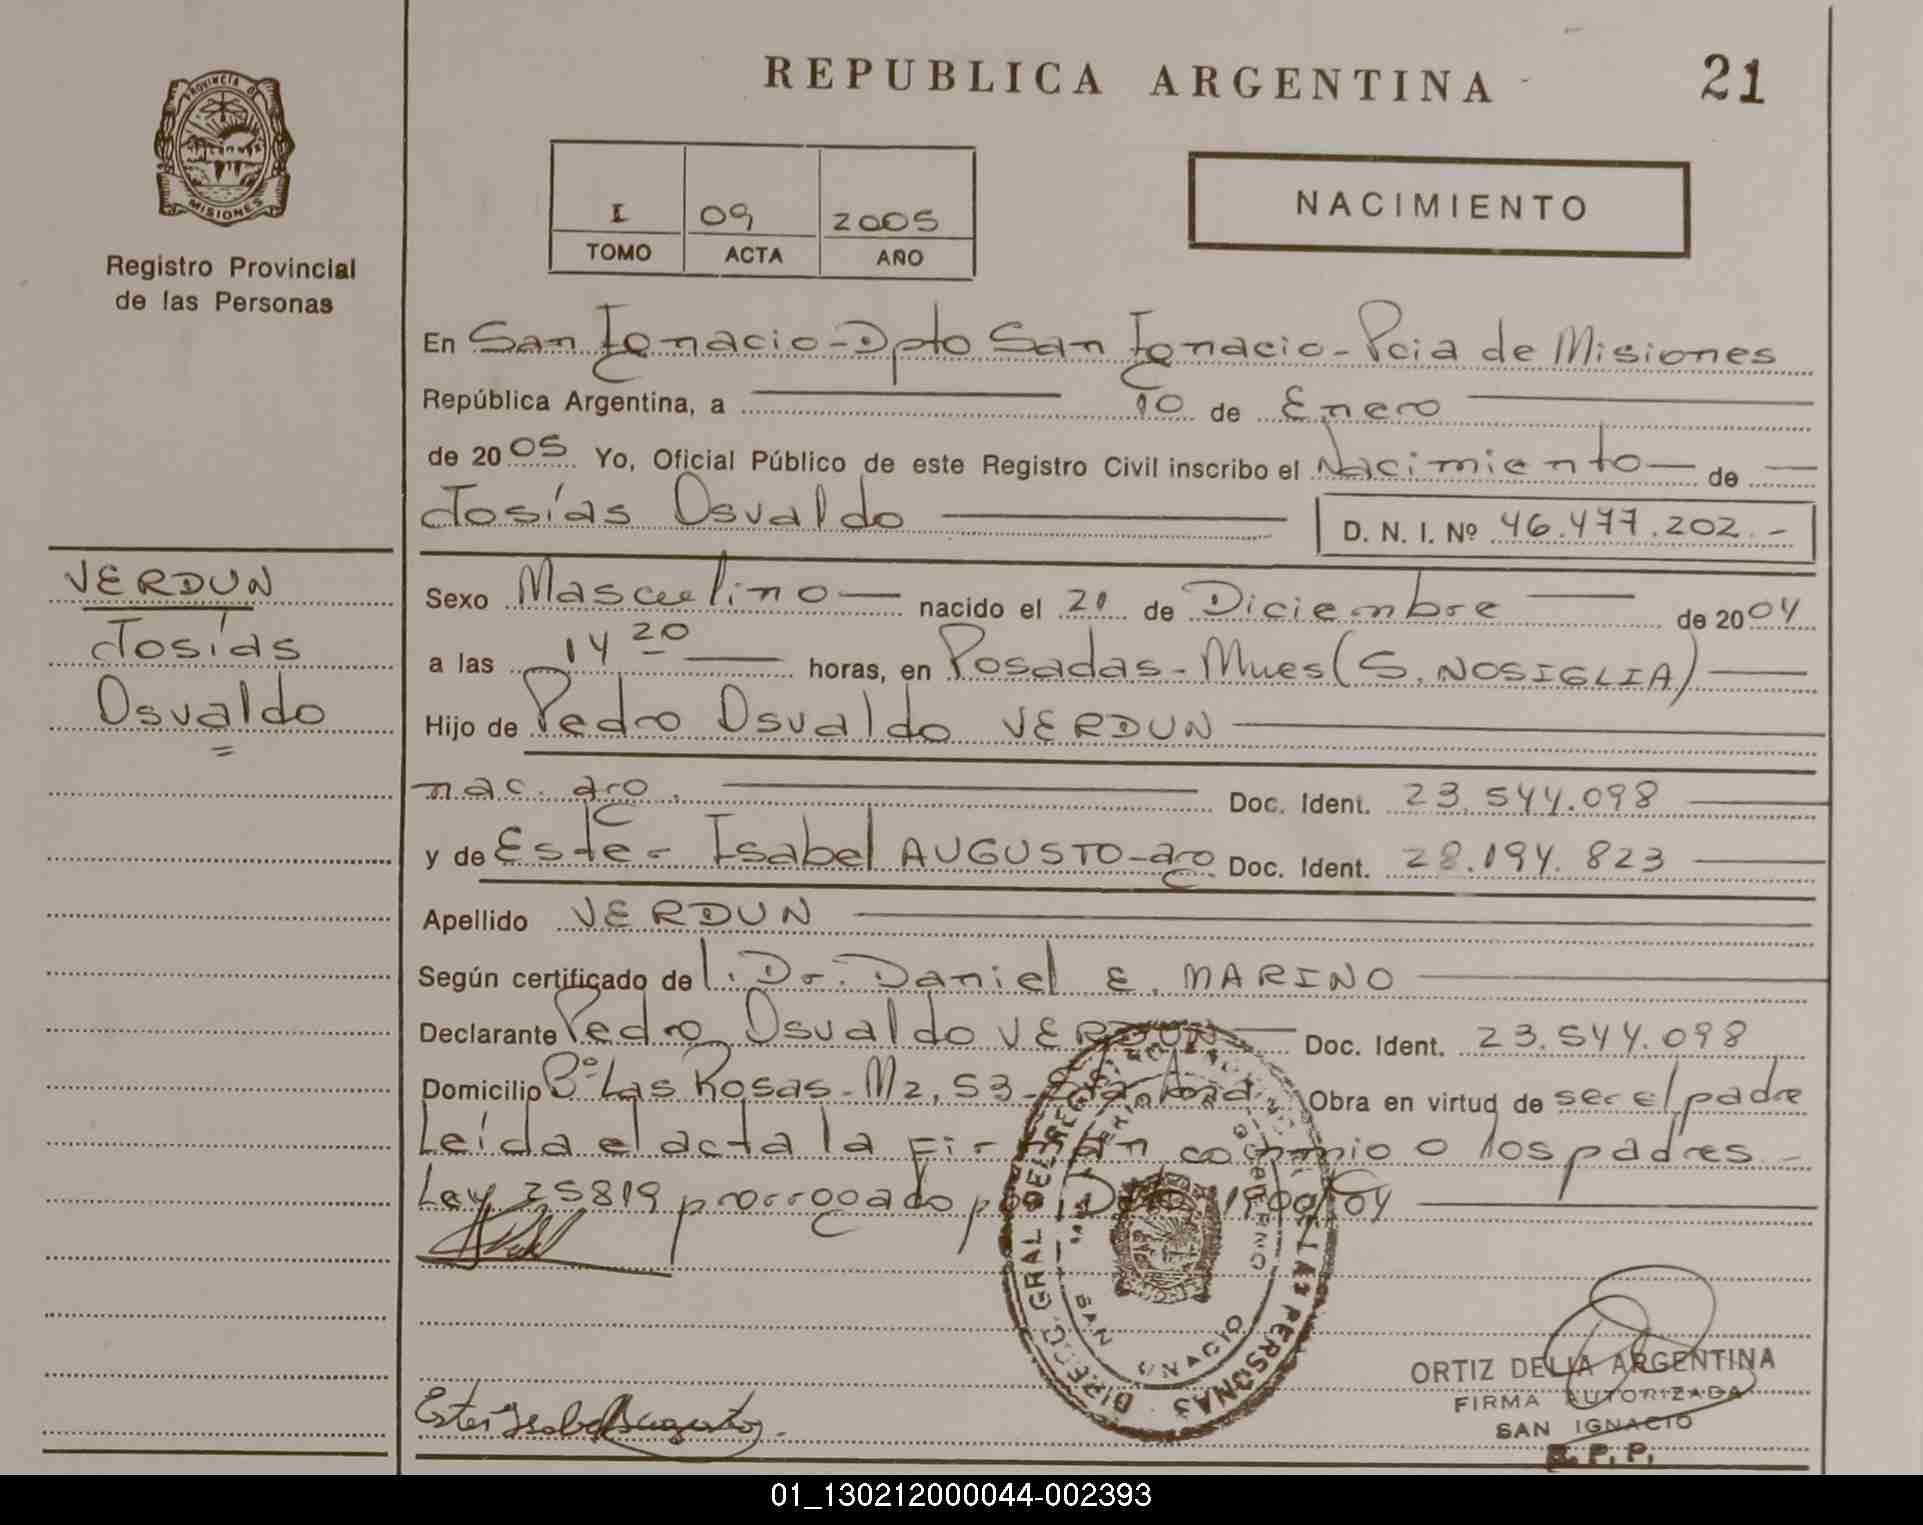 REPUBLICA ARGENTINA
21
PROVINCIA DE
MISIONES
Registro Provincial
de las Personas
I 09 2005
TOMO ACTA AÑO
NACIMIENTO
En San Ignacio-Dpto San Ignacio-Pcia de Misiones
República Argentina, a 10 de Enero
de 2005 Yo, Oficial Público de este Registro Civil inscribo el Nacimiento de
Josías Osvaldo
D. N. I. Nº 46.477.202.-
VERDUN
Josías
Osvaldo
Sexo Masculino nacido el 21 de Diciembre de 2004
a las 14 20 horas, en Posadas-Mnes (S. NOSIGLIA)
Hijo de Pedro Osvaldo VERDUN
nac. arg. Doc. Ident. 23.544.098
y de Ester Isabel AUGUSTO-arg Doc. Ident. 28.194.823
Apellido VERDUN
Según certificado de l. Dr. Daniel E. MARINO
Declarante Pedro Osvaldo VERDUN Doc. Ident. 23.544.098
Domicilio Bº Las Rosas-Mz, 53- Obra en virtud de ser el padre
Leída el acta la firman conmigo los padres-
Ley 25819 prorrogado por Dcto 1700/04
DIRECC. GRAL DEL REGISTRO DE LAS PERSONAS
SAN IGNACIO
Ester Isabel Augusto.
ORTIZ DELIA ARGENTINA
FIRMA AUTORIZADA
SAN IGNACIO
R.P.P.
01_130212000044-002393